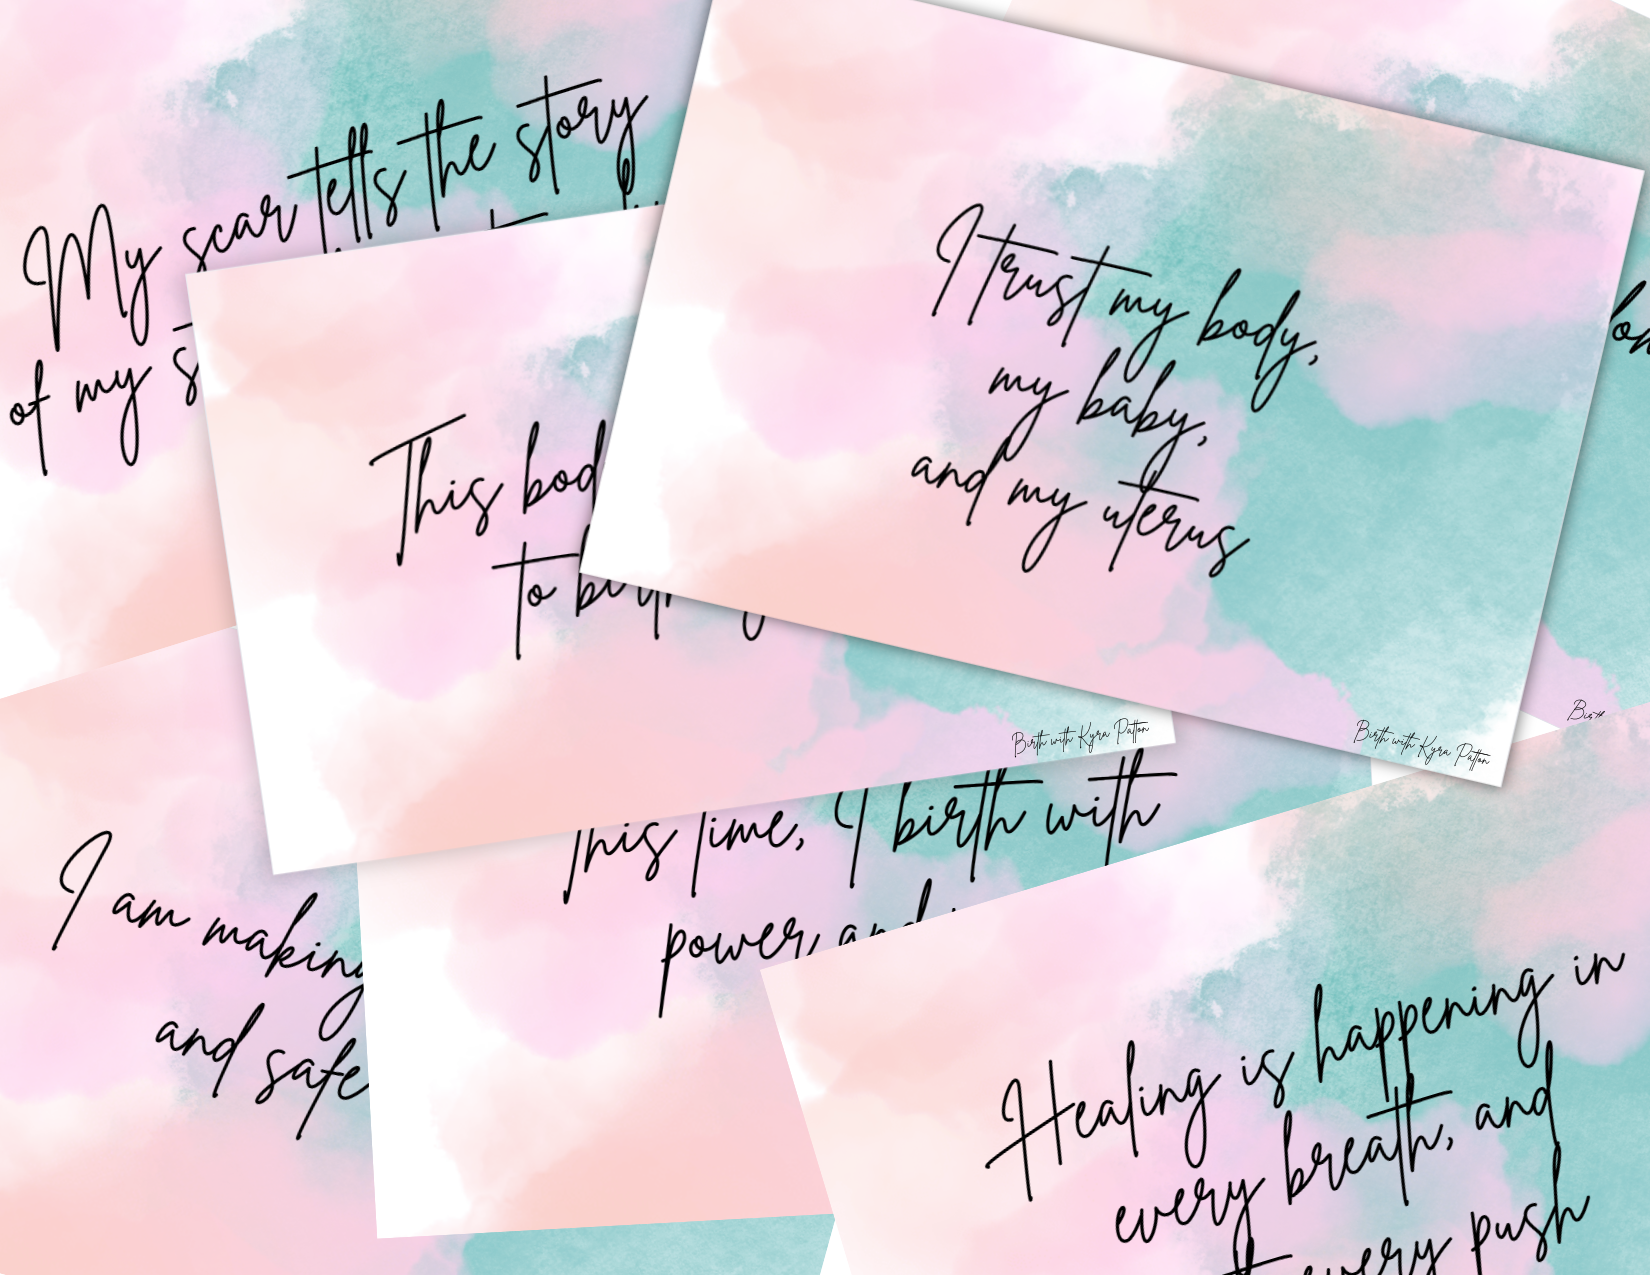 My scar tells the story
of my
This
to
Birth with Kyra Patton
I trust my body,
my baby,
and my uterus
Birth with Kyra Patton
Birth
I am making
and safe
This time, I birth with
power and
Healing is happening in
every breath, and
every push